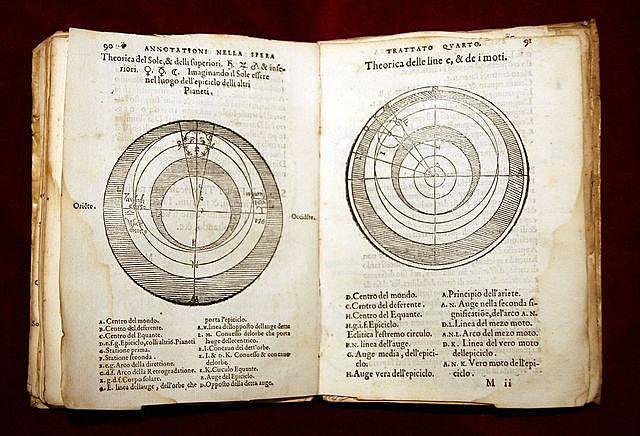 90
ANNOTATIONI NELLA SPERA
Theorica del Sole, & delli superiori. ♄ ♃ ♂ & infe-
riori. ♀ ☿ ☾. Imaginando il Sole essere
nel luogo dell'epiciclo delli altri
Pianeti.
Oriẽte.
Occidẽte.
A. Centro del mondo.
B. Centro del deferente.
C. Centro del Equante.
D.e.f.g. Epiciclo, & olli altri Pianeti
Statione prima.
F. Statione seconda.
e.g. Arco della direttione.
e.d.f. Arco della Retrogradatione.
g.d.f. Corpo solare.
E. linea dellauge, dell'orbe che
porta l'epiciclo.
A.v. linea dell'opposto dell'auge dette
M. Conuesso dell'orbe che porta
lauge dell'eccentrico.
L. Concauo del dett'orbe.
I. & D.K. Conuesso & concauo
del'orbe.
K. Circulo Equante.
Auge del Epiciclo.
D. Opposto della detta auge.
TRATTATO QVARTO.
91
Theorica delle line e, & de i moti.
D. Centro del mondo.
C. Centro del deferente.
H. Centro del Equante.
H.g.i.f. Epiciclo.
Eclitica l'estremo circulo.
B.N. linea dell'auge.
G. Auge media, dell'epici-
clo.
H. Auge vera dell'epiciclo.
A. Principio dell'ariete.
A. N. Auge nella seconda si-
gnificatiõe, del'arco A.N.
D.L. Linea del mezo moto.
A.N.L. Arco del mezo moto.
D. K. Linea del vero moto
dellepiciclo.
A. N. K. Vero moto dell'epi-
ciclo.
M ii